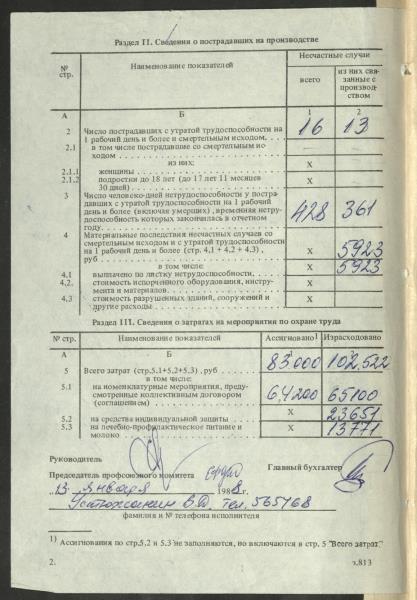 Раздел II. Сведения о пострадавших на производстве
№ стр. Наименование показателей Несчастные случаи
всего из них связанные с производством
А Б 1 2
2 Число пострадавших с утратой трудоспособности на
1 рабочий день и более и смертельным исходом, 16 13
2.1 в том числе пострадавшие со смертельным ис-
ходом — —
из них:
2.1.1 женщины X
2.1.2 подростки до 18 лет (до 17 лет 11 месяцев
30 дней) X
3 Число человеко-дней нетрудоспособности у постра-
давших с утратой трудоспособности на 1 рабочий
день и более (включая умерших), временная нетру-
доспособность которых закончилась в отчетном
году 428 361
4 Материальные последствия несчастных случаев со
смертельным исходом и с утратой трудоспособности
на 1 рабочий день и более (стр. 4,1 + 4,2 + 4,3),
руб X 5923
в том числе:
4.1 выплачено по листку нетрудоспособности, X 5923
4.2. стоимость испорченного оборудования, инстру-
мента и материалов. X
4,3 стоимость разрушенных зданий, сооружений и
другие расходы X
Раздел III. Сведения о затратах на мероприятия по охране труда
№ стр. Наименование показателей Ассигновано1 Израсходовано
А Б 1 2
5 Всего затрат (стр.5,1+5,2+5,3) , руб 83.000 102.522
в том числе:
5.1 на номенклатурные мероприятия, преду-
смотренные коллективным договором
(соглашением) 64200 65100
5.2 на средства индивидуальной защиты X 23651
5.3 на лечебно-профилактическое питание и
молоко X 13771
Руководитель
Председатель профсоюзного комитета Главный бухгалтер
„13" января 1988 г.
Устюжанин В.Д. тел. 565768
фамилия и № телефона исполнителя
1) Ассигнования по стр.5.2 и 5.3 не заполняются, но включаются в стр. 5 "Всего затрат."
2. з.813